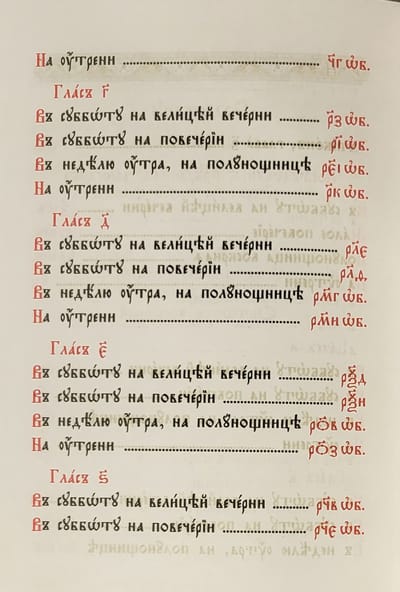 На оу҆́трени ........ ч҃г ѡ҆б.
Гла́съ г҃
Въ сꙋббѡ́тꙋ на вели́цѣй вече́рни ........ р҃з ѡ҆б.
Въ сꙋббѡ́тꙋ на повече́рїи ........ р҃і ѡ҆б.
Въ недѣ́лю оу҆́тра, на полꙋно́щницѣ р҃еі ѡ҆б.
На оу҆́трени ........ р҃к ѡ҆б.
Гла́съ д҃
Въ сꙋббѡ́тꙋ на вели́цѣй вече́рни ........ рл҃є
Въ сꙋббѡ́тꙋ на повече́рїи ........ рл҃ѳ
Въ недѣ́лю оу҆́тра, на полꙋно́щницѣ рм҃г ѡ҆б.
На оу҆́трени ........ рм҃и ѡ҆б.
Гла́съ є҃
Въ сꙋббѡ́тꙋ на вели́цѣй вече́рни ........ рѯ҃д
Въ сꙋббѡ́тꙋ на повече́рїи ........ рѯ҃и
Въ недѣ́лю оу҆́тра, на полꙋно́щницѣ ро҃в ѡ҆б.
На оу҆́трени ........ ро҃з ѡ҆б.
Гла́съ ѕ҃
Въ сꙋббѡ́тꙋ на вели́цѣй вече́рни ........ рч҃в ѡ҆б.
Въ сꙋббѡ́тꙋ на повече́рїи ........ рч҃є ѡ҆б.